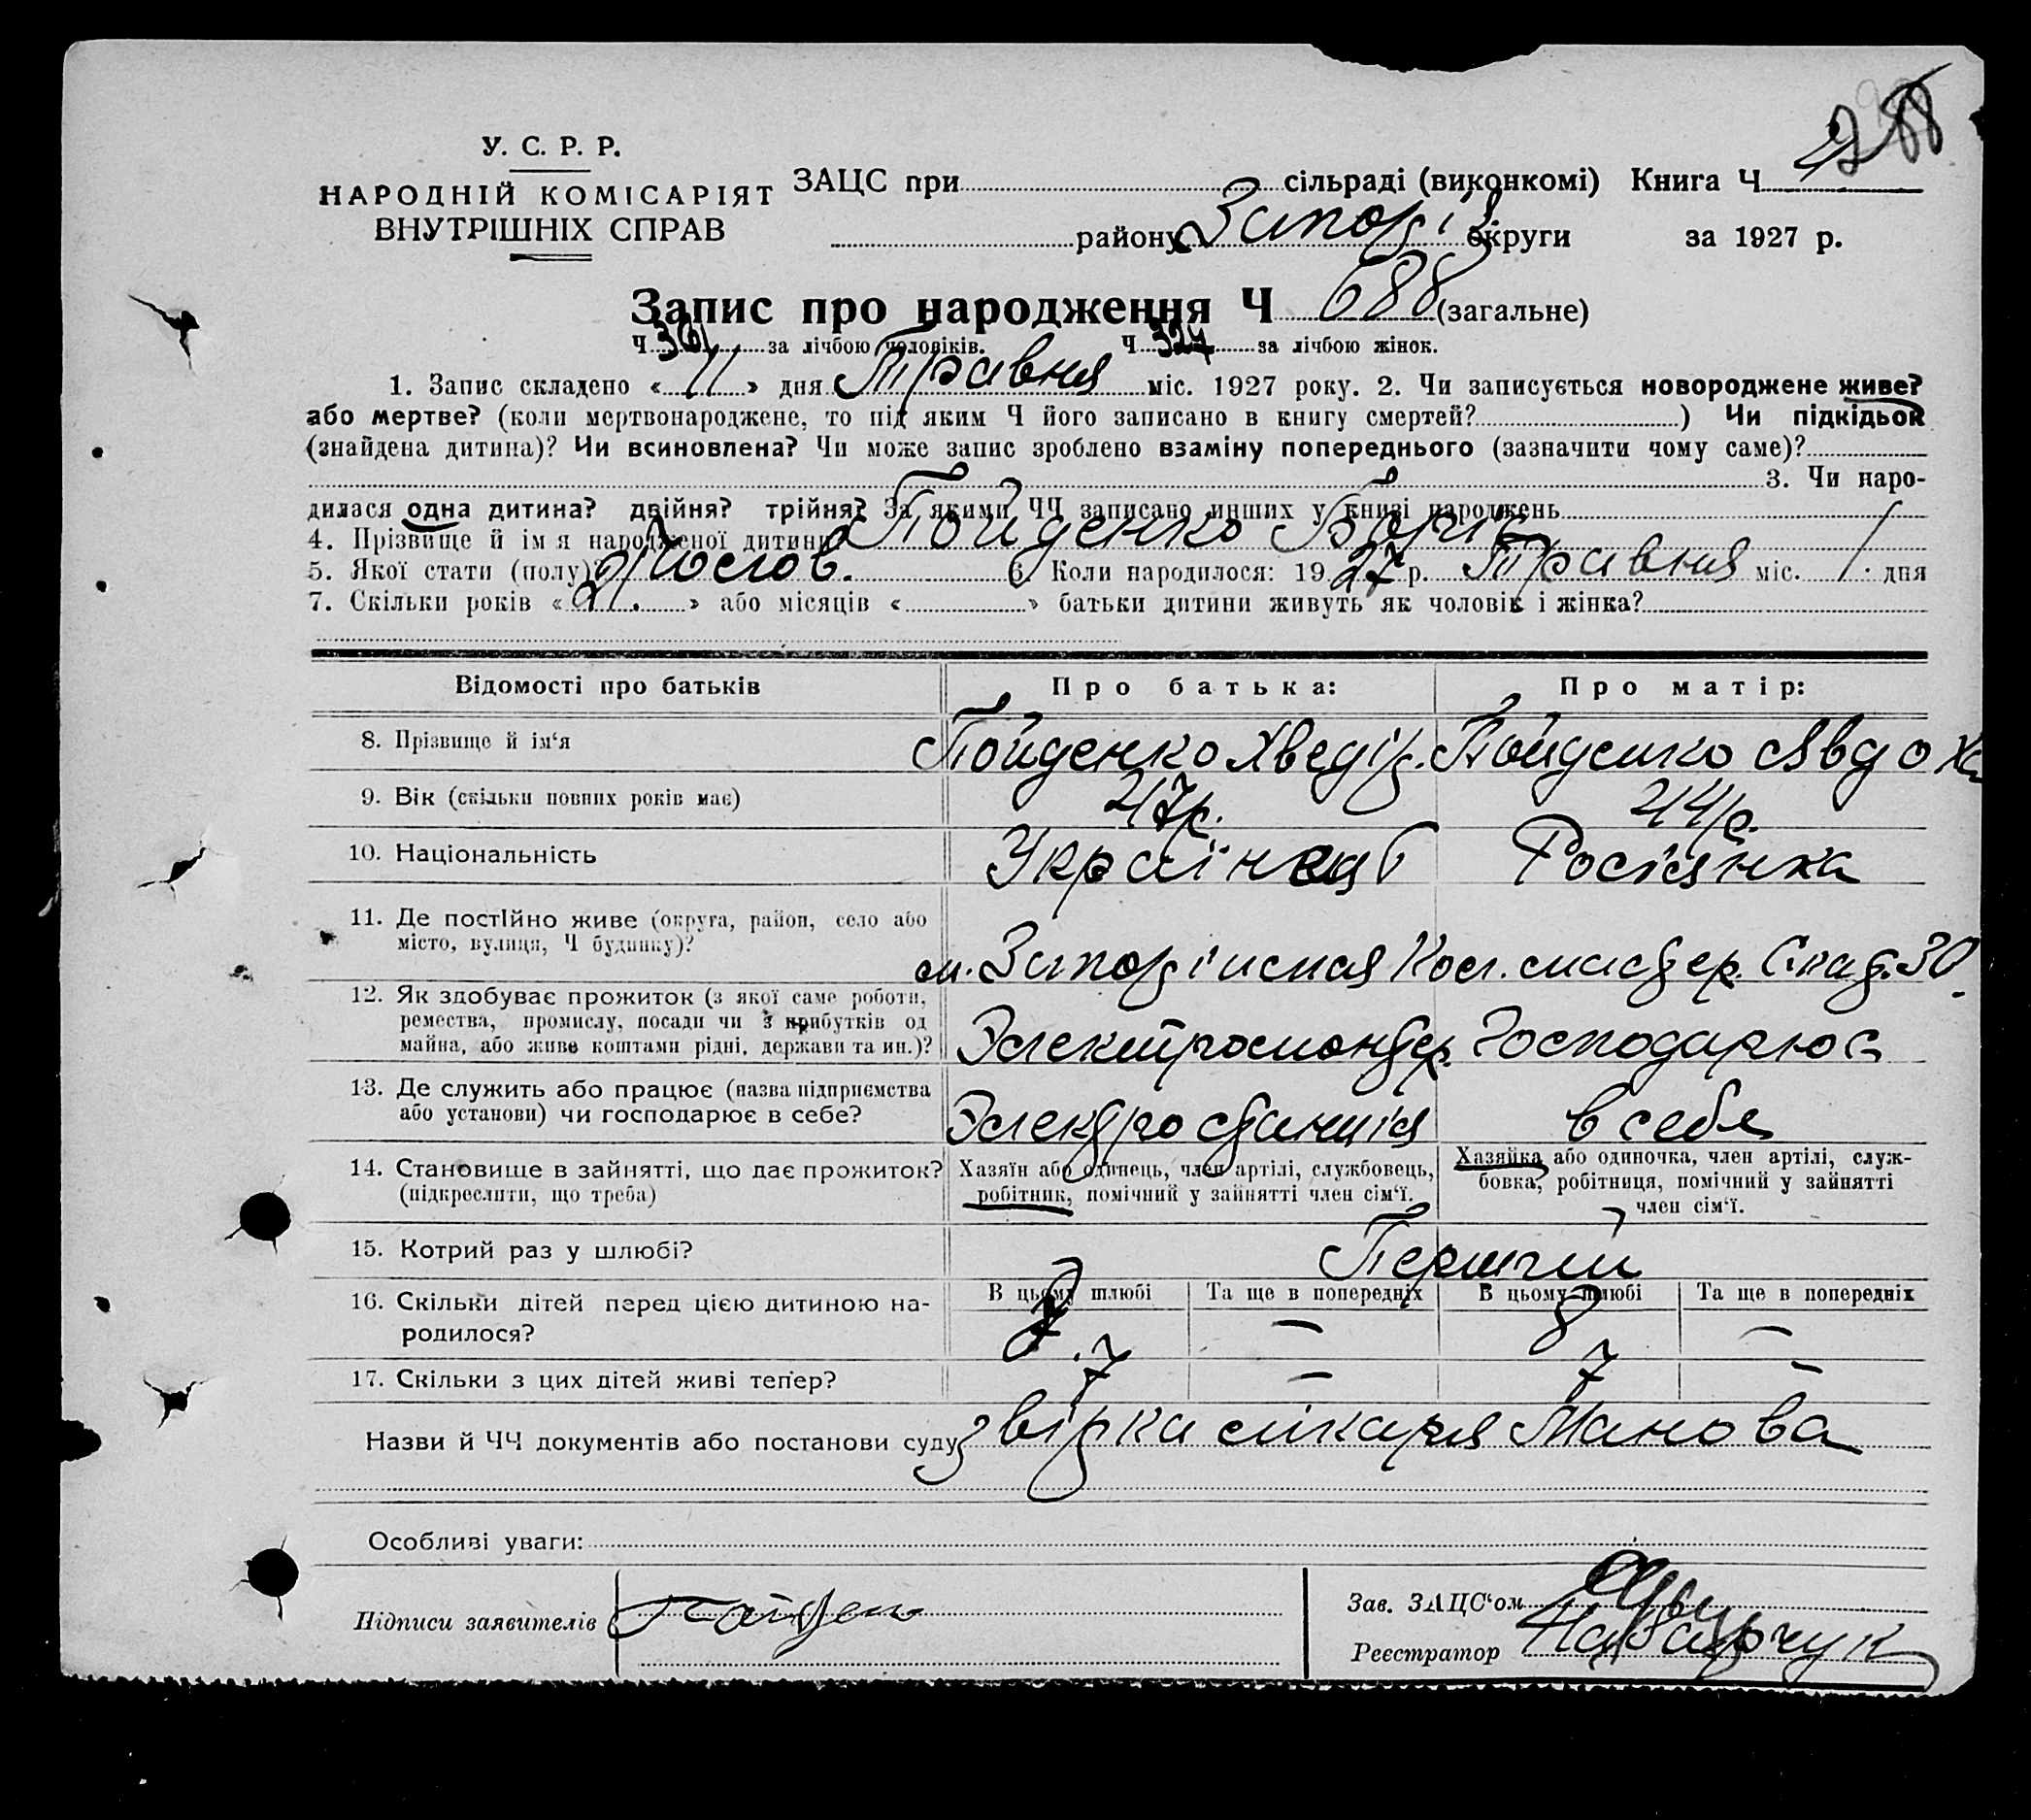 288
У. С. Р. Р.
НАРОДНІЙ КОМІСАРІЯТ
ВНУТРІШНІХ СПРАВ
ЗАЦС при сільраді (виконкомі) Книга Ч 4
району Запоріз округи за 1927 р.
Запис про народження Ч 688 (загальне)
Ч 361 за лічбою чоловіків. Ч 327 за лічбою жінок.
1. Запис складено « 11 » дня Травня міс. 1927 року. 2. Чи записується новороджене живе?
або мертве? (коли мертвонароджене, то під яким Ч його записано в книгу смертей? ) Чи підкідьок
(знайдена дитина)? Чи всиновлена? Чи може запис зроблено взаміну попереднього (зазначити чому саме)?
3. Чи наро-
дилася одна дитина? двійня? трійня? За якими ЧЧ записано инших у книзі народжень
4. Прізвище й ім я народженої дитини Пойденко Боріс
5. Якої стати (полу)? Чолов. 6. Коли народилося: 1927 р. Травня міс. 1. дня
7. Скільки років « 21. » або місяців « » батьки дитини живуть як чоловік і жінка?
Відомості про батьків Про батька: Про матір:
8. Прізвище й ім‘я Пойденко Хведір. Пойденко Явдоха
9. Вік (скільки повних років має) 47р. 44р.
10. Національність Українець Росіянка
11. Де постійно живе (округа, район, село або
місто, вулиця, Ч будинку)? м. Запоріжжя 30.
12. Як здобуває прожиток (з якої саме роботи,
ремества, промислу, посади чи з прибутків од
майна, або живе коштами рідні, держави та ин.)? Электромонтер. Господарює
13. Де служить або працює (назва підприємства
або установи) чи господарює в себе? Электростанція в себе
14. Становище в зайнятті, що дає прожиток?
(підкреслити, що треба)
Хазяїн або одинець, член артілі, службовець,
робітник, помічний у зайнятті член сім‘ї.
Хазяйка або одиночка, член артілі, служ-
бовка, робітниця, помічний у зайнятті
член сім‘ї.
15. Котрий раз у шлюбі? Перший
16. Скільки дітей перед цією дитиною на-
родилося?
В цьому шлюбі Та ще в попередніх В цьому шлюбі Та ще в попередніх
8 — 8 —
17. Скільки з цих дітей живі тепер? 7 — 7 —
Назви й ЧЧ документів або постанови суду звірка лікаря Манова
Особливі уваги:
Підписи заявителів Пайден
Зав. ЗАЦС‘ом
Реєстратор